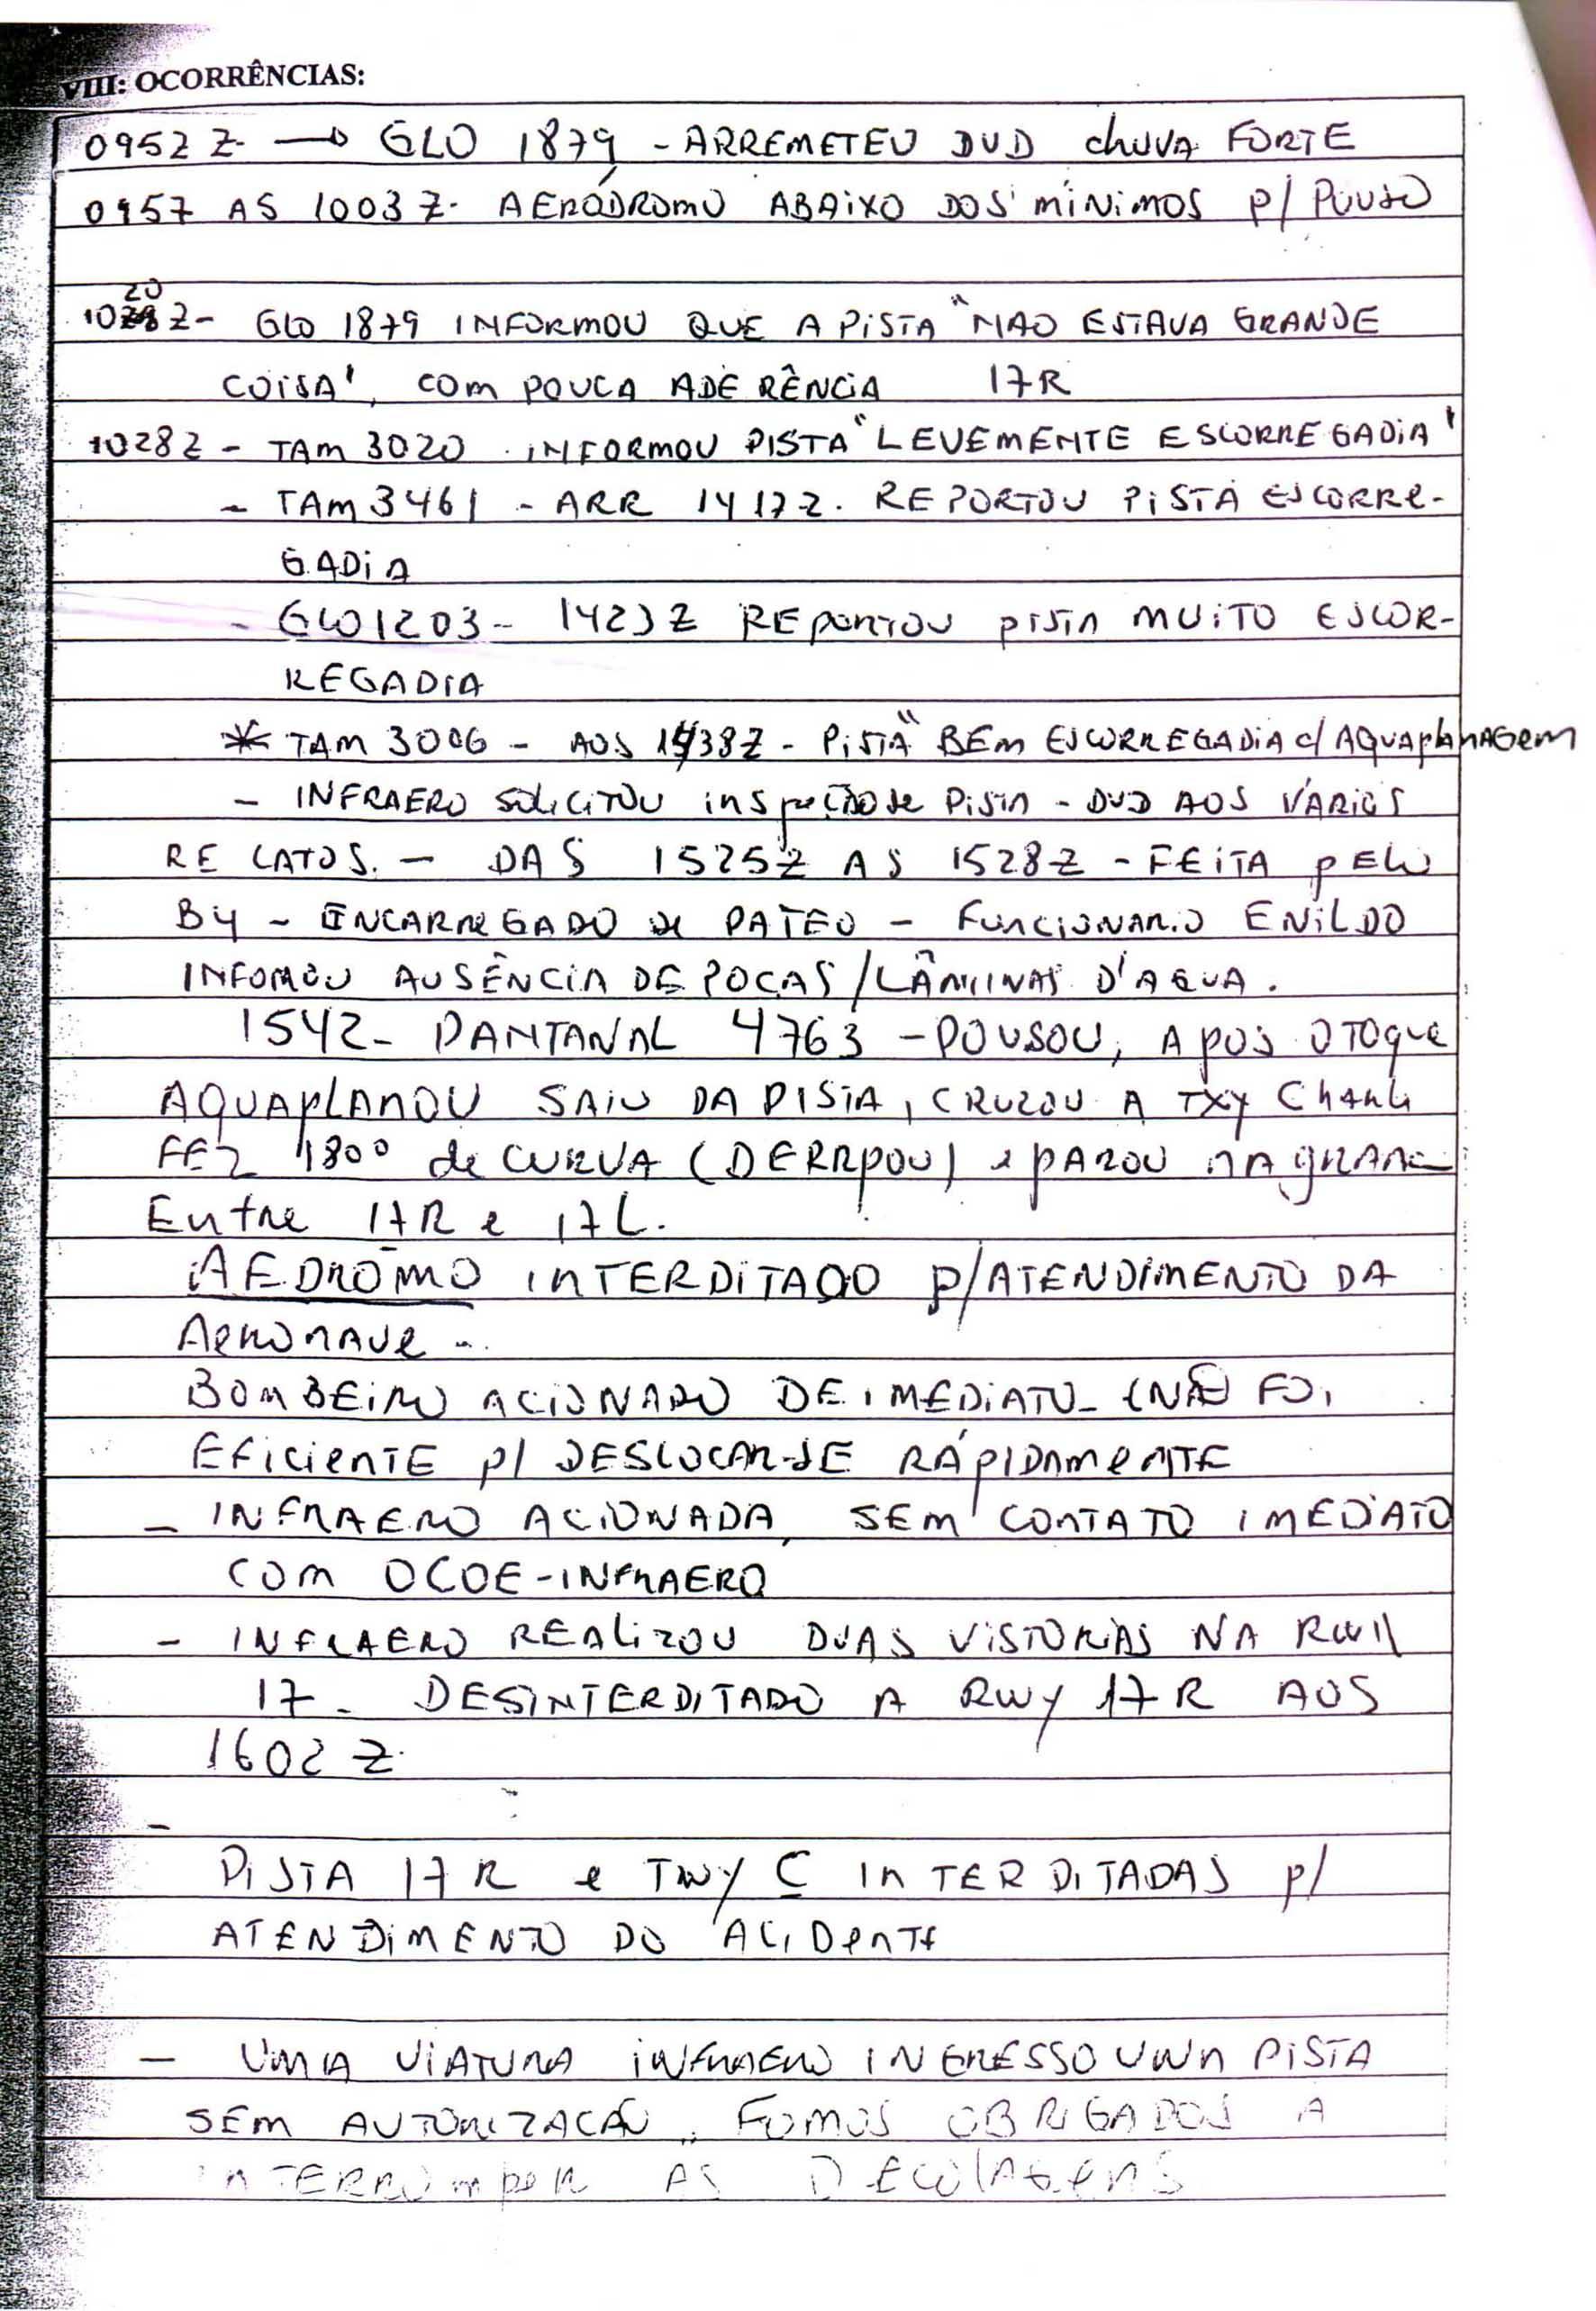 VIII: OCORRÊNCIAS:
0952 Z → GLO 1879 - ARREMETEU DVD chUVA FORTE
0957 AS 1003 Z. AERÓDROMO ABAIXO DOS MÍNIMOS p/ POUSO
1020 Z - GLO 1879 INFORMOU QUE A PISTA "NAO ESTAVA GRANDE
COISA", COM POUCA ADERÊNCIA 17R
1028Z - TAM 3020 INFORMOU PISTA "LEVEMENTE ESCORREGADIA"
- TAM 3461 - ARR 1417Z. REPORTOU PISTA ESCORRE-
GADIA
- GLO1203 - 1423Z REPORTOU PISTA MUITO ESCOR-
REGADIA
* TAM 3006 - AOS 1438Z - PISTA "BEM ESCORREGADIA c/ AQUAPLANAGEM
- INFRAERO SOLICITOU inspeção de PISTA - DVD AOS VÁRIOS
RELATOS. - DAS 1525Z AS 1528Z - FEITA PELO
B4 - ENCARREGADO de PATEO - FUNCIONARIO ENILDO
INFOMOU AUSÊNCIA DE POCAS/LÂMINAS D'AGUA.
1542 - PANTANAL 4763 - POUSOU, APOS O TOque
AQUAPLANOU SAIU DA PISTA, CRUZOU A TXY CHARLI
FEZ 180º de CURVA (DERRPOU) e PAROU NA GRAMA
Entre 17R e 17L.
AEDROMO INTERDITADO p/ ATENDIMENTO DA
AERONAVE -
BOMBEIRO ACIONADO DE IMEDIATO - (NÃO FOI
EFICIENTE p/ DESLOCAR-SE RÁPIDAMENTE
- INFRAERO ACIONADA, SEM CONTATO IMEDIATO
COM OCOE-INFRAERO
- INFRAERO REALIZOU DUAS VISTORIAS NA RWY
17 - DESINTERDITADO A RWY 17R AOS
1602 Z
-
PISTA 17R e TWY C INTERDITADAS p/
ATENDIMENTO DO ACIDENTE
- UMA VIATURA INFRAERO INGRESSOU NA PISTA
SEM AUTORIZACAO, FOMOS OBRIGADOS A
INTERROMPER AS DECOLAGENS